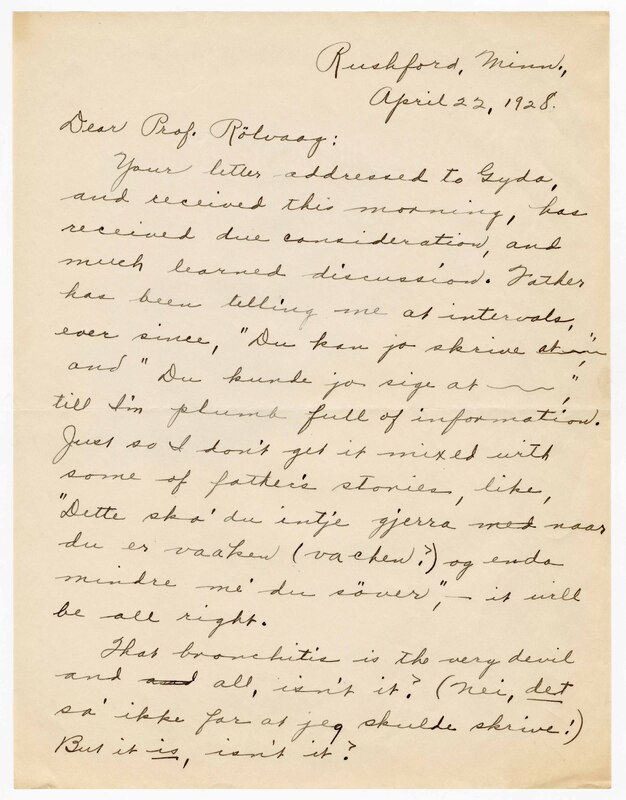 Rushford, Minn.,
April 22, 1928.
Dear Prof. Rölvaag:
Your letter addressed to Gyda,
and received this morning, has
received due consideration, and
much learned discussion. Father
has been telling me at intervals,
ever since, "Du kan jo skrive at ——",
and "Du kunde jo sige at ——",
till I'm plumb full of information.
Just so I don't get it mixed with
some of father's stories, like,
"Dette ska' du intje gjerra med naar
du er vaaken (vachen?) og enda
mindre me' du söver", — it will
be all right.
That bronchitis is the very devil
and and all, isn't it? (Nei, det
sa' ikke far at jeg skulde skrive!)
But it is, isn't it?